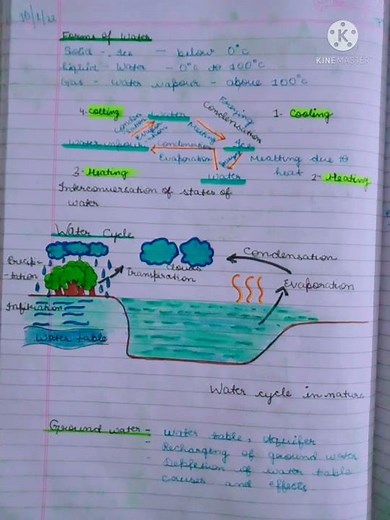 KINEMASTER
Forms of Water
Solid - Ice - below 0°C
Liquid - Water - 0°C to 100°C
Gas - Water vapour - above 100°C
4. Cooling
Water
Condensation
1- Cooling
Melting
Ice
Water vapour
Condensation
Evaporation
Water
Mealting due to
heat
2- Heating
3- Heating
Interconversation of states of
water
Water Cycle
Precipi-
-tation
Clouds
Transpiration
Condensation
Evaporation
Infiltration
Water table
Water cycle in nature
Ground water - Water table, Aquifer
- Recharging of ground water
- Depletion of water table
causes and effects